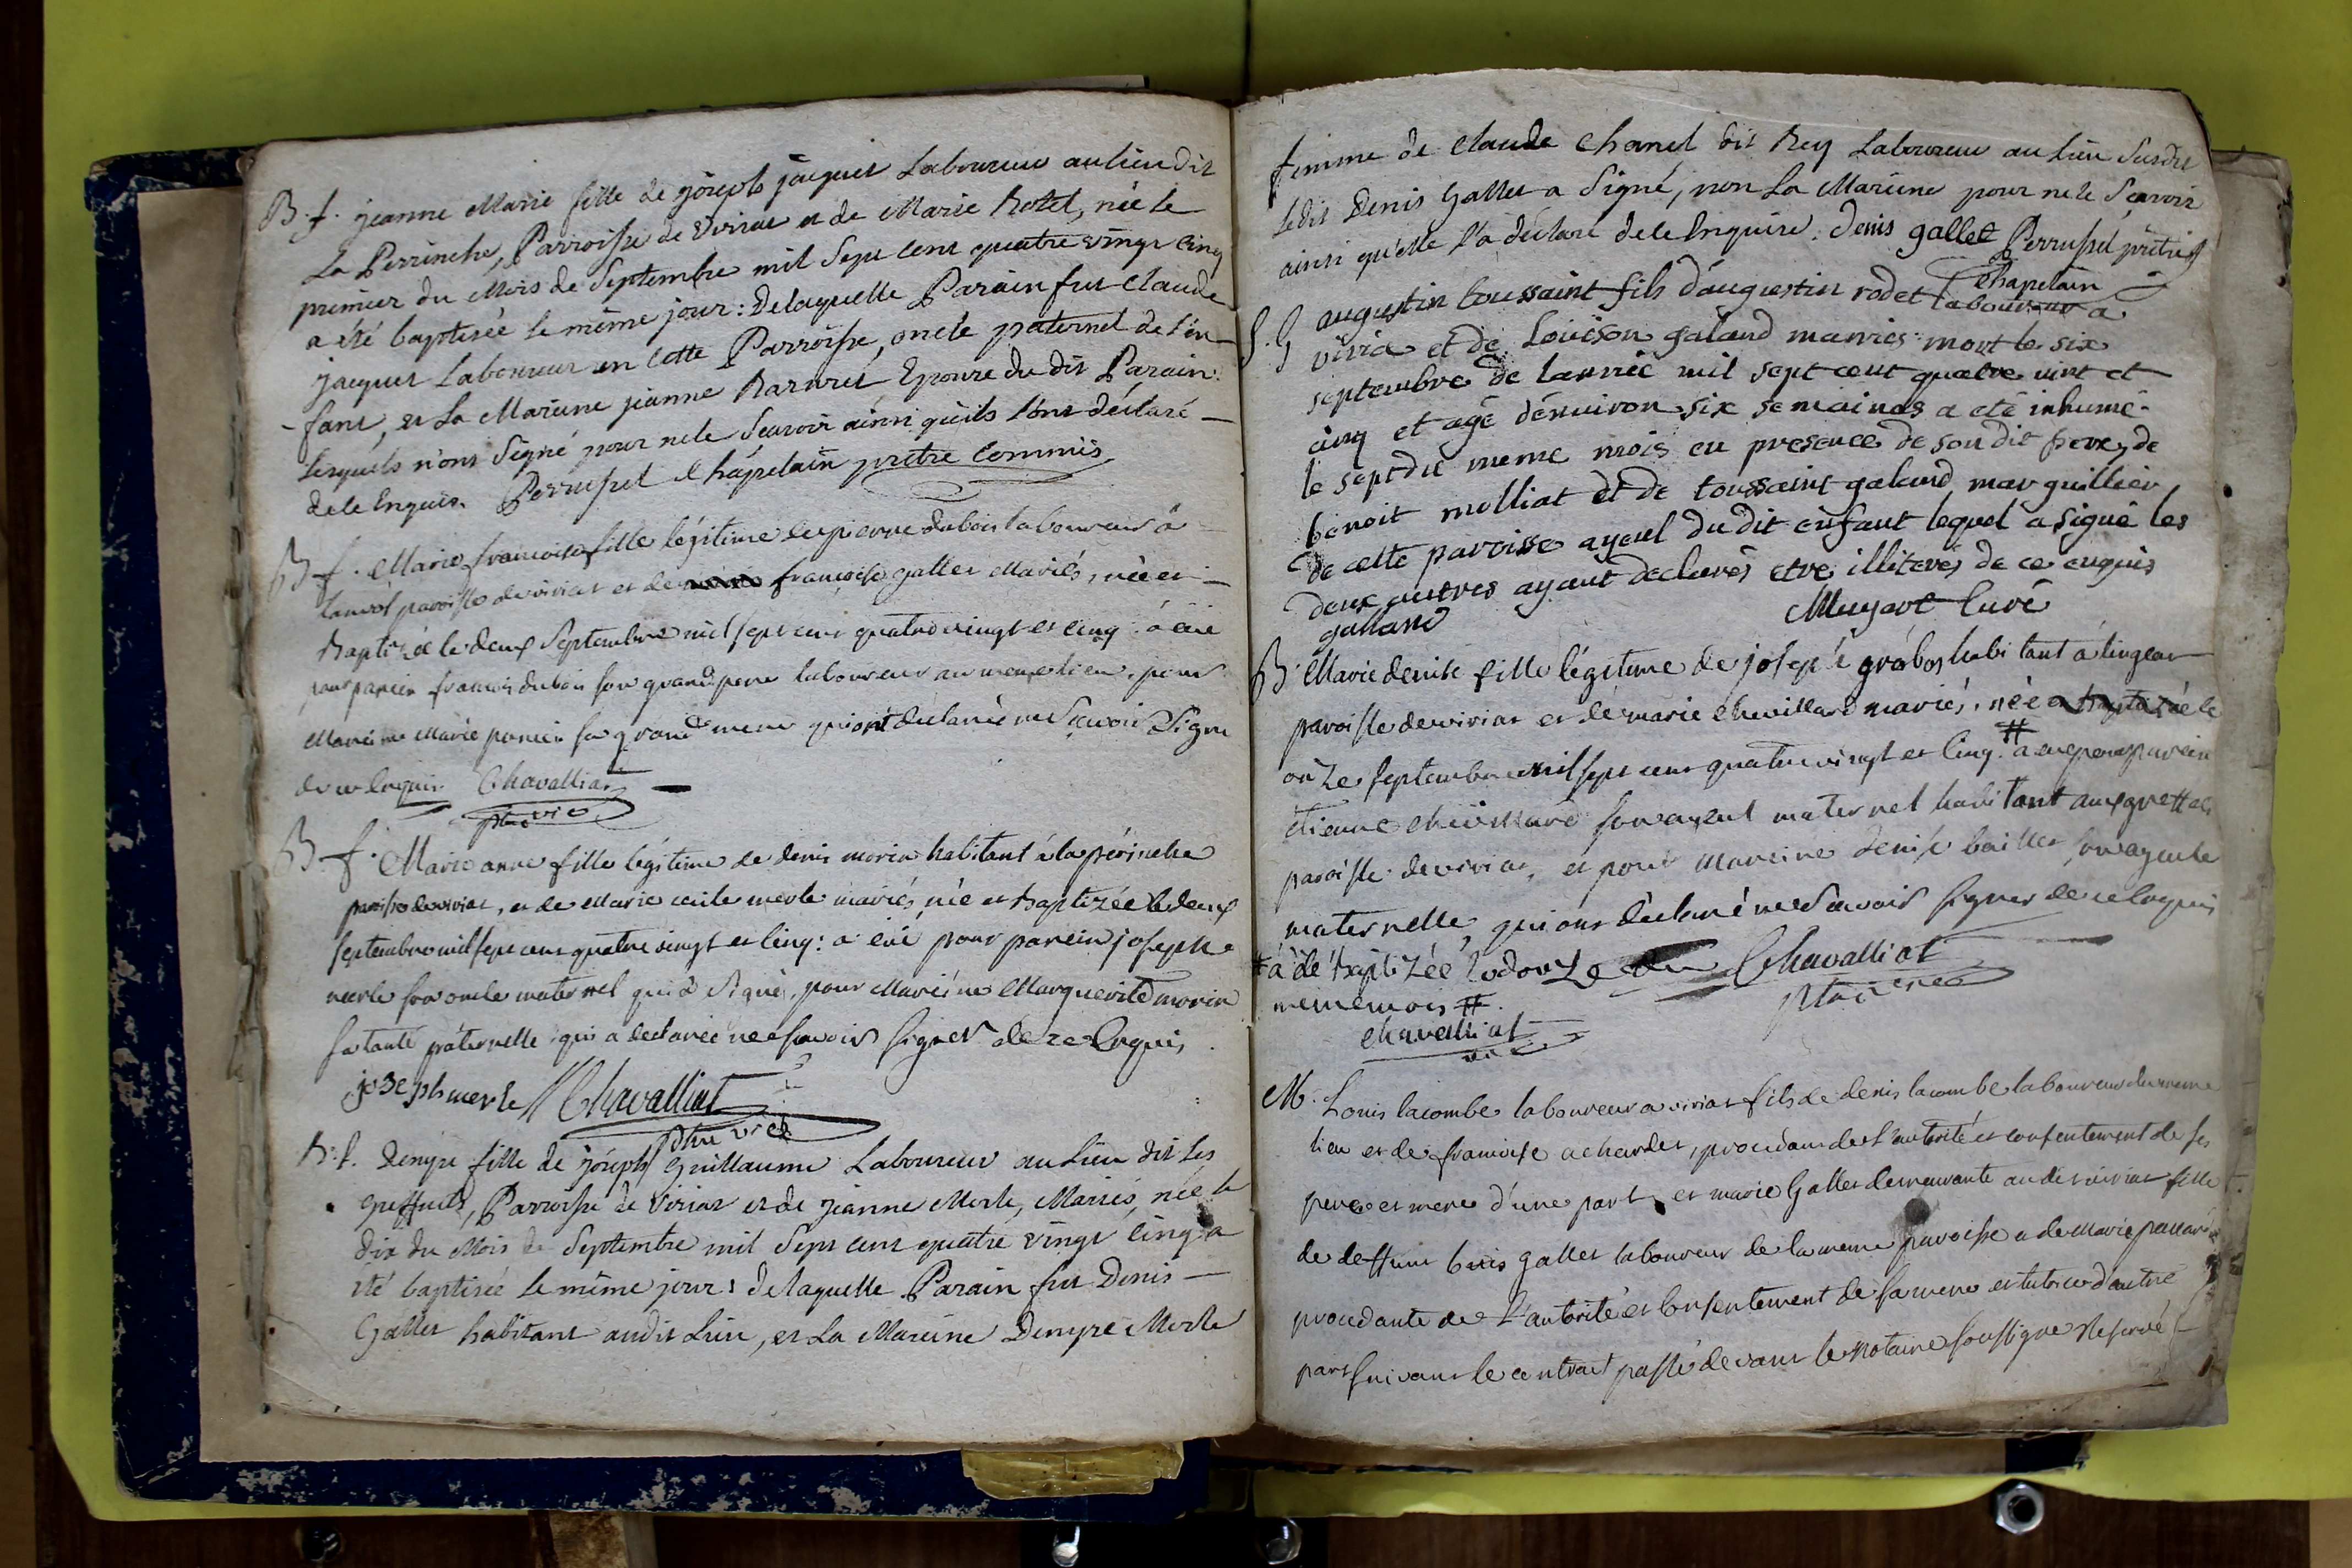 B. f. jeanne Marie fille de jóseph jacquet Laboureur au lieu dit
La Perrinche, Parroisse de Viriat et de Marie Rotet, née le
premier du Mois de Septembre mil Sept cent quatre vingt cinq
a été baptisée le même jour: de laquelle Parain fut Claude
jacquet Laboureur en cette Parroisse, oncle paternel de l'en-
-fant, et La Maraine jeanne Epouse du dit Parain:
lesquels n'ont Signé pour ne le Scavoir ainsi qu'ils l'ont déclaré
de le Enquis. Perruset Chapelain prêtre Commis
B f. Marie francoise fille légitime de pierre dubois laboureur à
paroisse de viriat et de francoise gallet Mariés, née et
baptizée le deux Septembre mil sept cent quatre vingt et cinq. a été
pour parein francois dubois son grand pere laboureur au meme lieu, pour
Mareine Marie son grand mere qui ont declaré ne Scavoir Signer
de ce Enquis Chavalliat
ptre vic
B. f. Marie anne fille légitime de denis morin habitant à la périnche
paroisse de viriat, et de Marie cecile merle mariés, née et baptizée le deux
septembre mil sept cent quatre vingt et cinq: a été pour parein josephe
merle son oncle maternel qui a Signé, pour Mareine Marguerite morin
sa tante paternelle qui a declaré ne scavoir signer de ce Enquis
joseph merle Chavalliat
ptre vic
B. f. Denyse fille de jóseph Guillaume Laboureur au Lieu dit Les
Greffets, Parroisse de Viriat et de jeanne Merle, Mariés, née le
dix du Mois de Septembre mil Sept cent quatre vingt cinq a
été baptisée le même jour: de laquelle Parain fut Denis
Gallet habitant audit Lieu, et La Maraine Denyse Merle
femme de Claude Chanel dit Rey Laboureur au Lieu Susdit
ledit Denis Gallet a Signé, non La Maraine pour ne le Scavoir
ainsi qu'elle l'a déclaré de le Enquise. Denis gallet Perruset prêtre
Chapelain
S. G augustin toussaint fils d'augustin rodet laboureur a
viria et de Louison galand mariés mort le six
septembre de l'année mil sept cent quatre vint et
cinq et agé d'enuiron six semaines a eté inhumé
le sept du meme mois en presence de son dit pere, de
benoit molliat et de toussaint galand marguillier
de cette paroisse ayeul du dit enfant lequel a signé les
deux autres ayant declarés etre illiterés de ce enquis
galland Muyart Curé
B. Marie denise fille légitime de joseph grabos habitant à lingeat
paroisse de viriat et de marie chevillard mariés, née et baptizée le
onze septembre mil sept cent quatre vingt et cinq. # a eu pour parein
etienne chevillard son ayeul maternel habitant aux greffets
paroisse de viriat, et pour Mareine denise baillet son ayeule
maternelle, qui ont déclaré ne Scavoir signer de ce Enquis
# a été baptizée le douze du Chavalliat
meme mois #. ptre vic
chavalliat
vic
M. Louis lacombe laboureur a viriat fils de denis lacombe laboureur du meme
lieu et de francoise achardet, procédant de l'autorité et consentement de ses
pere et mere d'une part, et marie Gallet demeurante audit viriat fille
de deffunt Gallet laboureur de la meme paroisse et de Marie
procedante de l'autorité et consentement de sa mere et tutrice d'autre
part suivant le contract passé devant le notaire soussigne